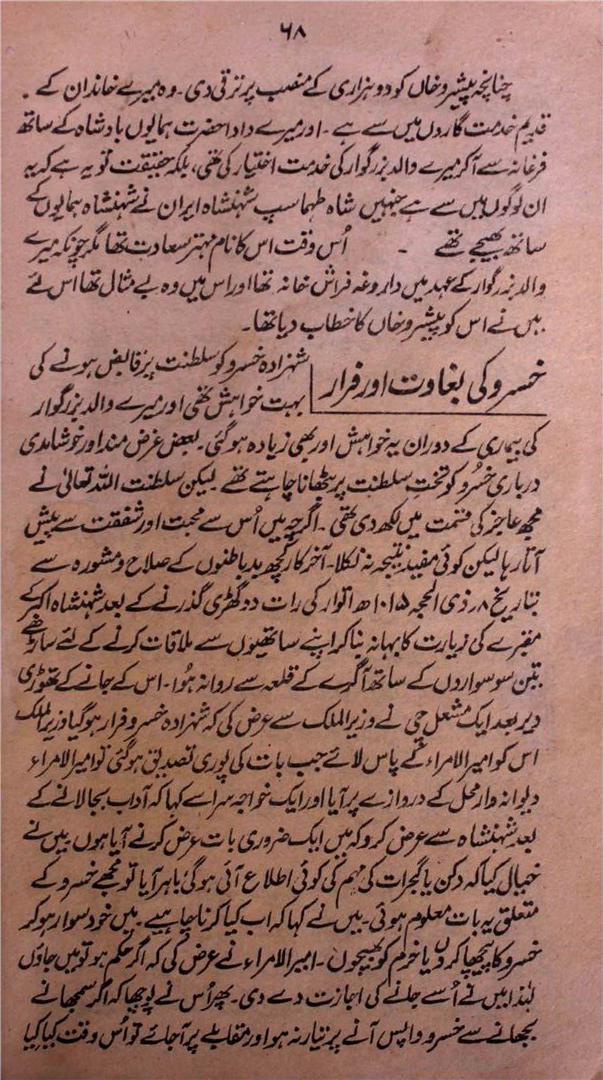 ۶۸
چنانچہ پیشرو خاں کو دو ہزاری کے منصب پر ترقی دی۔ وہ میرے خاندان کے
قدیم خدمت گاروں میں سے ہے۔ اور میرے دادا حضرت ہمایوں بادشاہ کے ساتھ
فرغانہ سے آکر میرے والد بزرگوار کی خدمت اختیار کی تھی، بلکہ حقیقت تو یہ ہے کہ یہ
ان لوگوں میں سے ہے جنہیں شاہ طہماسپ شہنشاہ ایران نے شہنشاہ ہمایوں کے
ساتھ بھیجے تھے ۔ اُس وقت اس کا نام مہتر سعادت تھا مگر چونکہ میرے
والد بزرگوار کے عہد میں داروغہ فراش خانہ تھا اور اس میں وہ بے مثال تھا اس لئے
میں نے اس کو پیشرو خاں کا خطاب دیا تھا۔
خسرو کی بغاوت اور فرار
شہزادہ خسرو کو سلطنت پر قابض ہونے کی
بہت خواہش تھی اور میرے والد بزرگوار
کی بیماری کے دوران یہ خواہش اور بھی زیادہ ہوگئی۔ بعض غرض مند اور خوشامدی
درباری خسرو کو تخت سلطنت پر بٹھانا چاہتے تھے لیکن سلطنت اللہ تعالیٰ نے
مجھ عاجز کی قسمت میں لکھ دی تھی۔ اگرچہ میں اُس سے محبت اور شفقت سے پیش
آتا رہا لیکن کوئی مفید نتیجہ نہ نکلا۔ آخر کار کچھ بد باطنوں کے صلاح و مشورہ سے
بتاریخ ۸ر ذی الحجہ ۱۰۱۵ھ اتوار کی رات دو گھڑی گذرنے کے بعد شہنشاہ اکبر کے
مقبرے کی زیارت کا بہانہ بنا کر اپنے ساتھیوں سے ملاقات کرنے کے لئے ساڑھے
تین سو سواروں کے ساتھ آگرے کے قلعہ سے روانہ ہُوا۔ اس کے جانے کے تھوڑی
دیر بعد ایک مشعل چی نے وزیر الملک سے عرض کی کہ شہزادہ خسرو فرار ہوگیا وزیر الملک
اس کو امیر الامراء کے پاس لائے جب بات کی پوری تصدیق ہوگئی تو امیر الامراء
دیوانہ وار محل کے دروازے پر آیا اور ایک خواجہ سرا سے کہا کہ آداب بجا لانے کے
بعد شہنشاہ سے عرض کرو کہ میں ایک ضروری بات عرض کرنے آیا ہوں میں نے
خیال کیا کہ دکن یا گجرات کی مہم کی کوئی اطلاع آئی ہوگی باہر آیا تو مجھے خسرو کے
متعلق یہ بات معلوم ہوئی۔ میں نے کہا کہ اب کیا کرنا چاہیے۔ میں خود سوار ہو کر
خسرو کا پیچھا کروں یا خرم کو بھیجوں۔ امیر الامراء نے عرض کی کہ اگر حکم ہو تو میں جاؤں
لہٰذا میں نے اُسے جانے کی اجازت دے دی۔ پھر اُس نے پوچھا کہ اگر سمجھانے
بجھانے سے خسرو واپس آنے پر تیار نہ ہو اور مقابلے پر آجائے تو اُس وقت کیا کیا